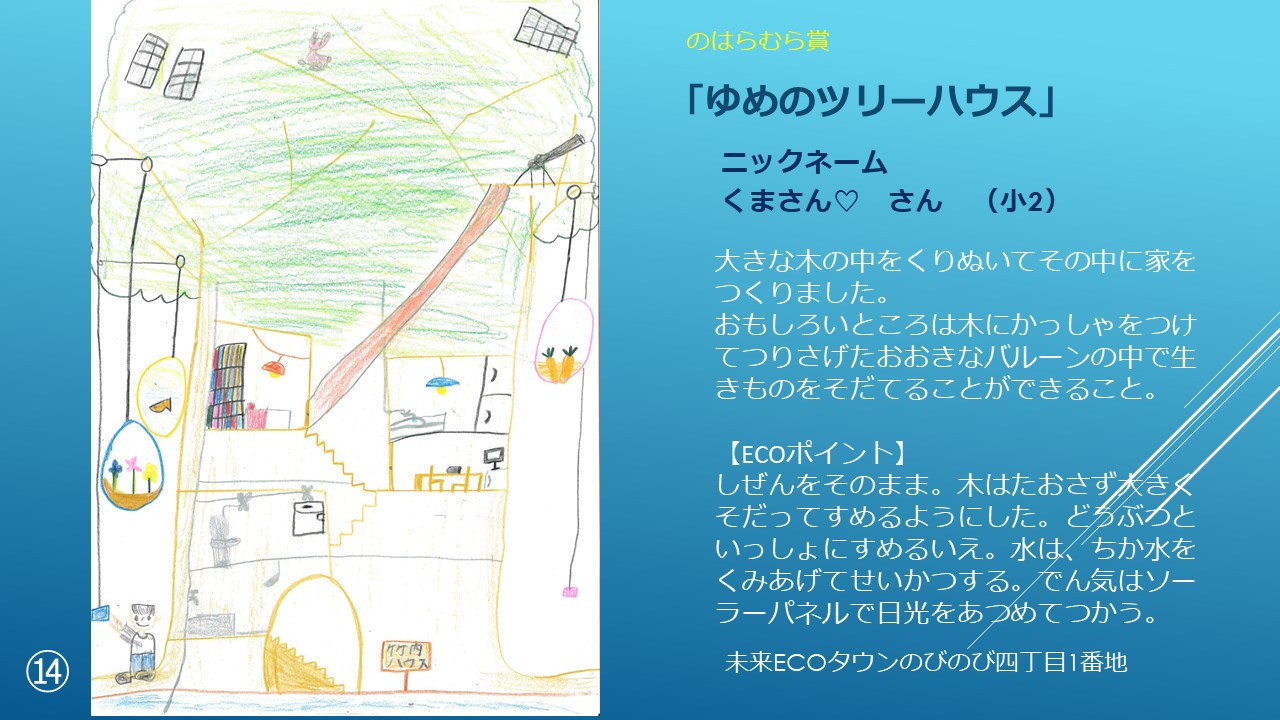 のはらむら賞
「ゆめのツリーハウス」
ニックネーム
くまさん♡　さん　（小2）
大きな木の中をくりぬいてその中に家を
つくりました。
おもしろいところは木にかっしゃをつけ
てつりさげたおおきなバルーンの中で生
きものをそだてることができること。
【ECOポイント】
しぜんをそのまま。木はたおさず大きく
そだってすめるようにした。どうぶつと
いっしょにすめるいえ。水は、ちか水を
くみあげてせいかつする。でん気はソー
ラーパネルで日光をあつめてつかう。
未来ECOタウンのびのび四丁目1番地
竹内
ハウス
⑭